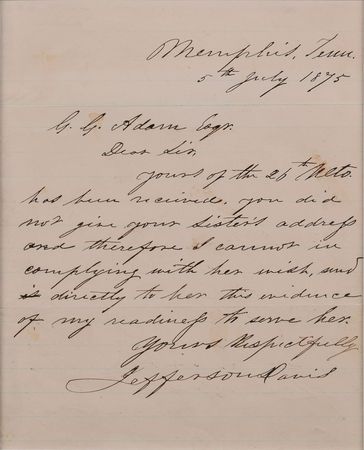 Memphis, Tenn.
5th July 1875
G. G. Adam Esqr.
Dear Sir,
yours of the 26th Ulto.
has been received. you did
not give your sister's address
and therefore I cannot in
complying with her wish, send
directly to her this evidence
of my readiness to serve her.
Yours Respectfully
Jefferson Davis